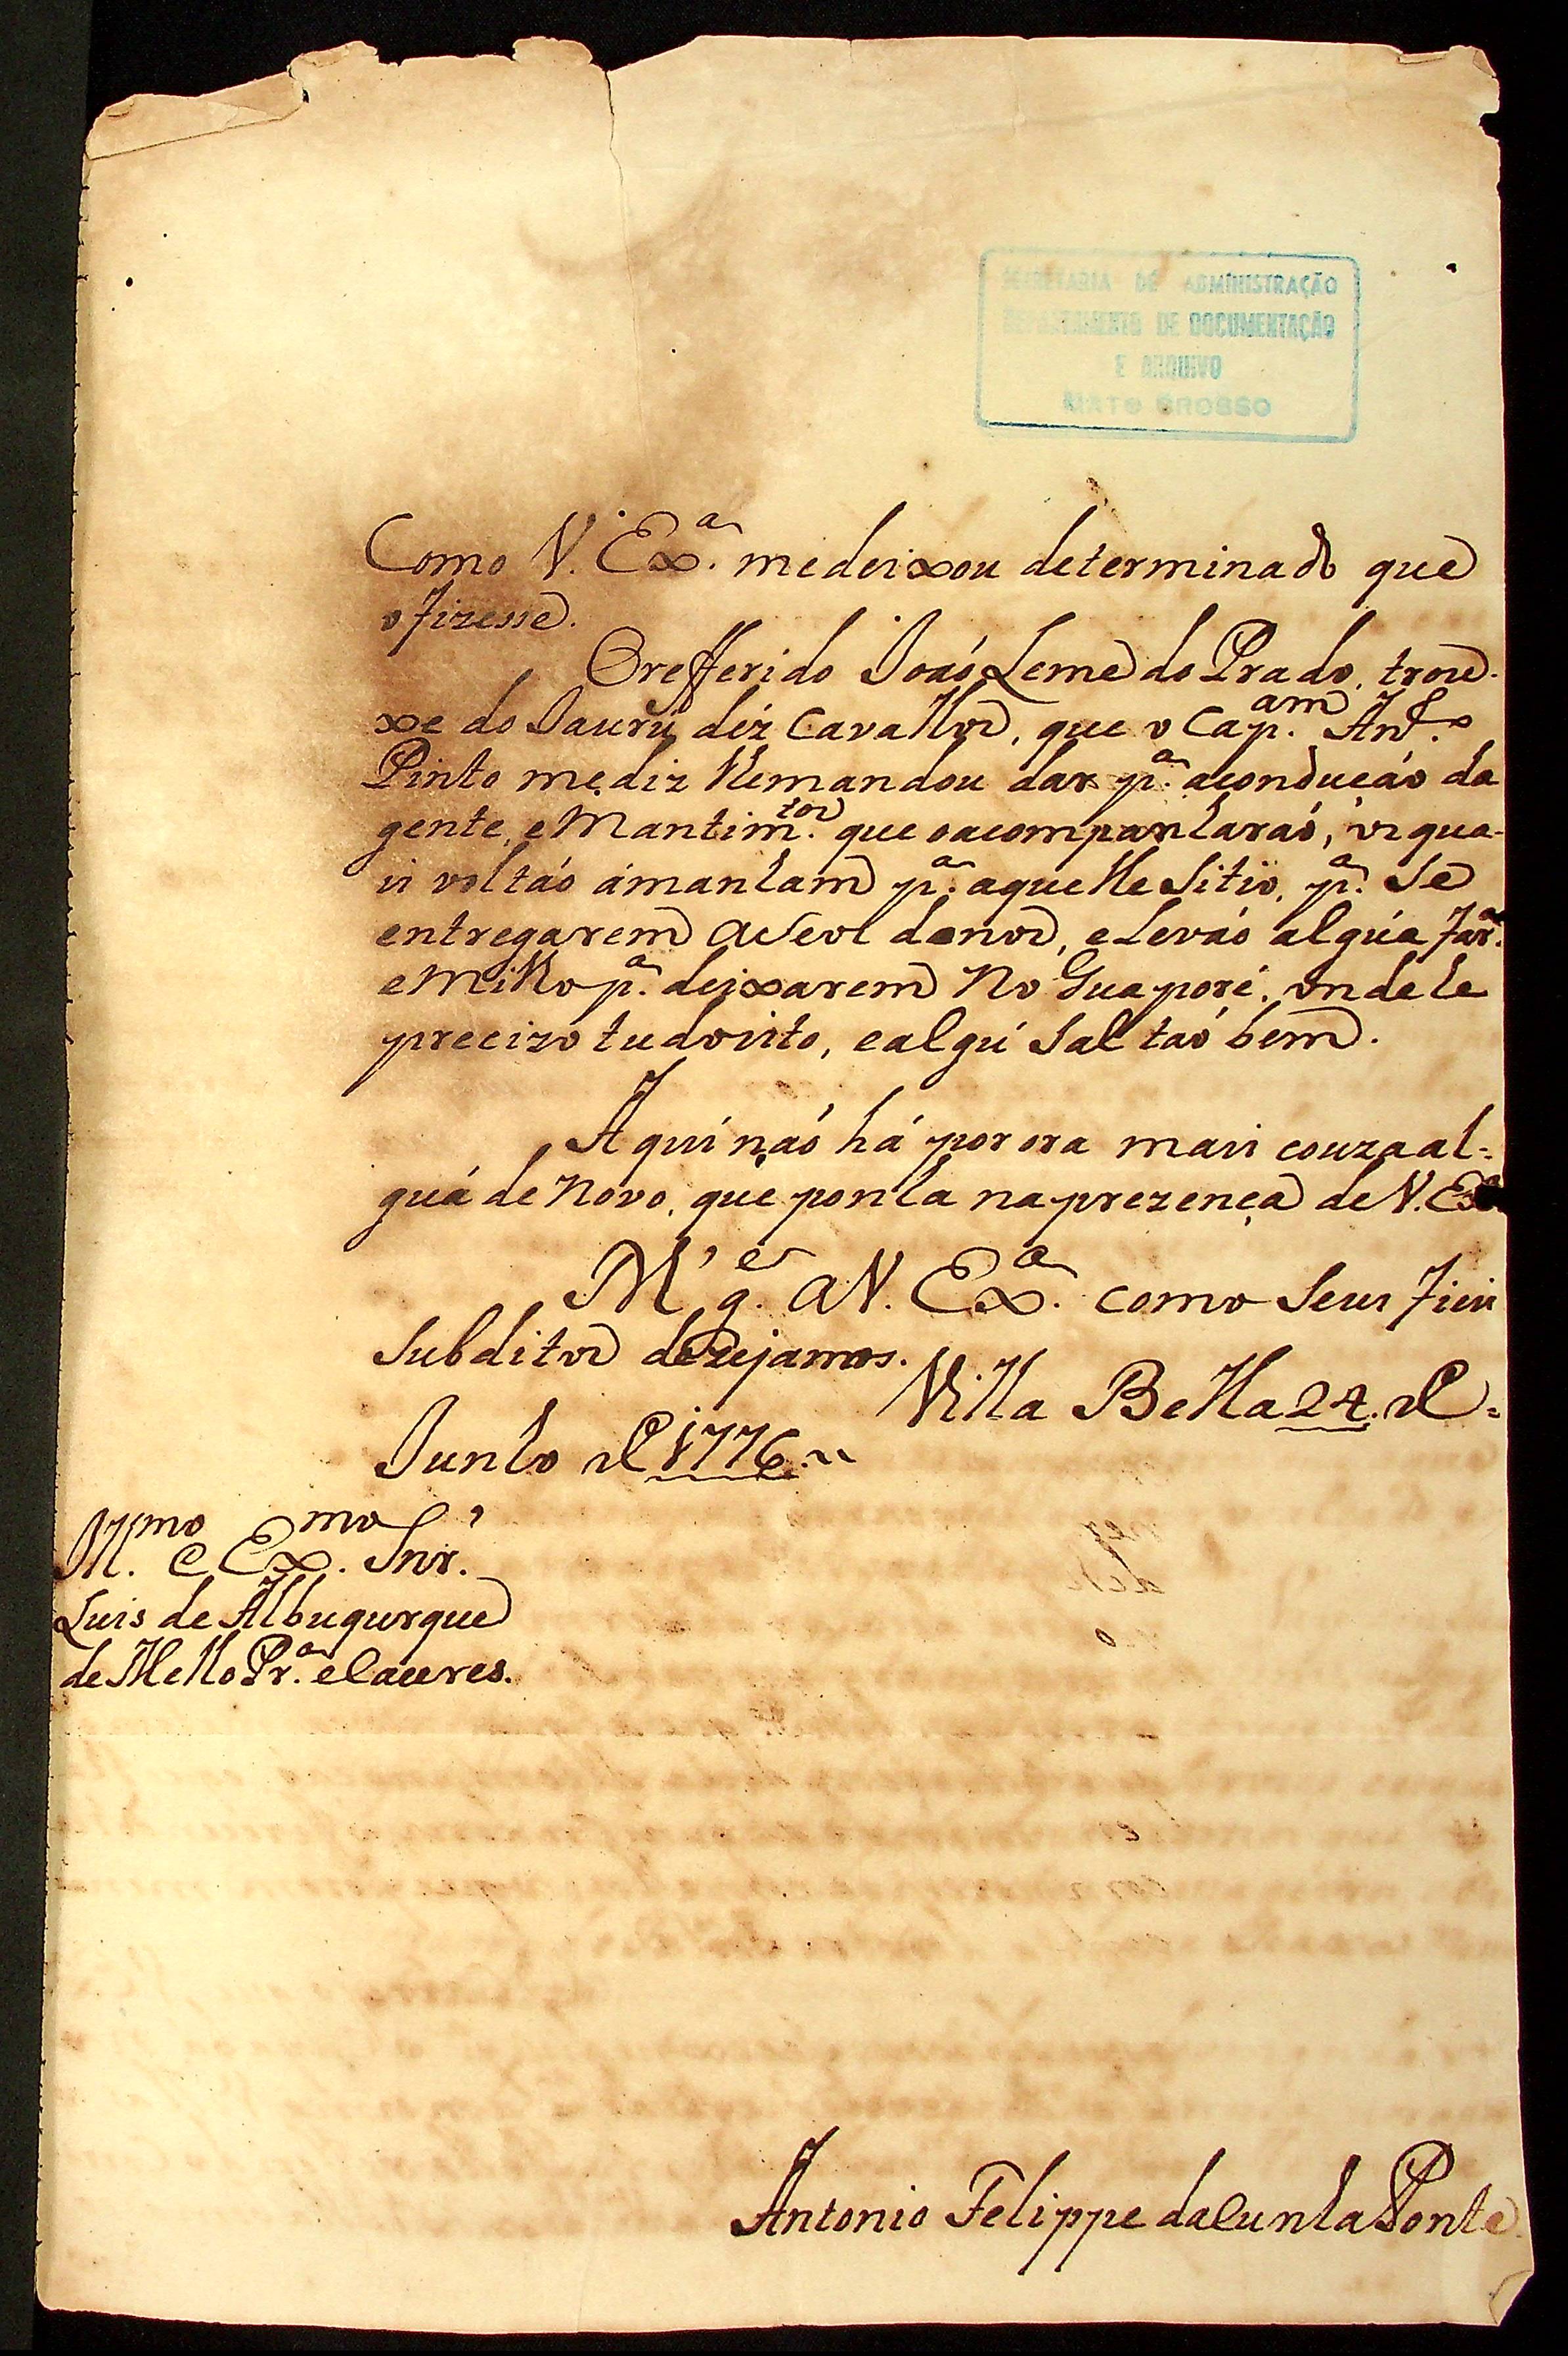 SECRETARIA DE ADMINISTRAÇÃO
DEPARTAMENTO DE DOCUMENTAÇÃO
E ARQUIVO
MATO GROSSO
Como V. Exª. medeixou determinado que
o fizesse.
Orefferido Joaó Leme do Prado, trou-
xe do Jaurú déz cavallos, que o Cap.am Antº.
Pinto mediz lhemandou dar pª. aconducáo da
gente, e Mantim.tos que oacompanharaó, os qua-
is voltáo ámanham pª. aquelle Sitio, pª. Se
entregarem aseos donos, eLeváo algúa Farª.
eMilho pª. deixarem No Guaporé, onde he
precizo tudo isto, ealgú Sal taó bem.
Aqui naó há por ora mais couza al-
guá de Novo, que ponha naprezença de V. Exª
D.' g.e a V. Exª. como Seus Fieis
Subditos dezejamos. Villa Bella 24. de
Junho de 1776.
Ill.mo e Ex.mo Snr.'
Luis de Albuquerque
de Mello Pr.ª e Caceres.
Antonio Felippe da Cunha Ponte